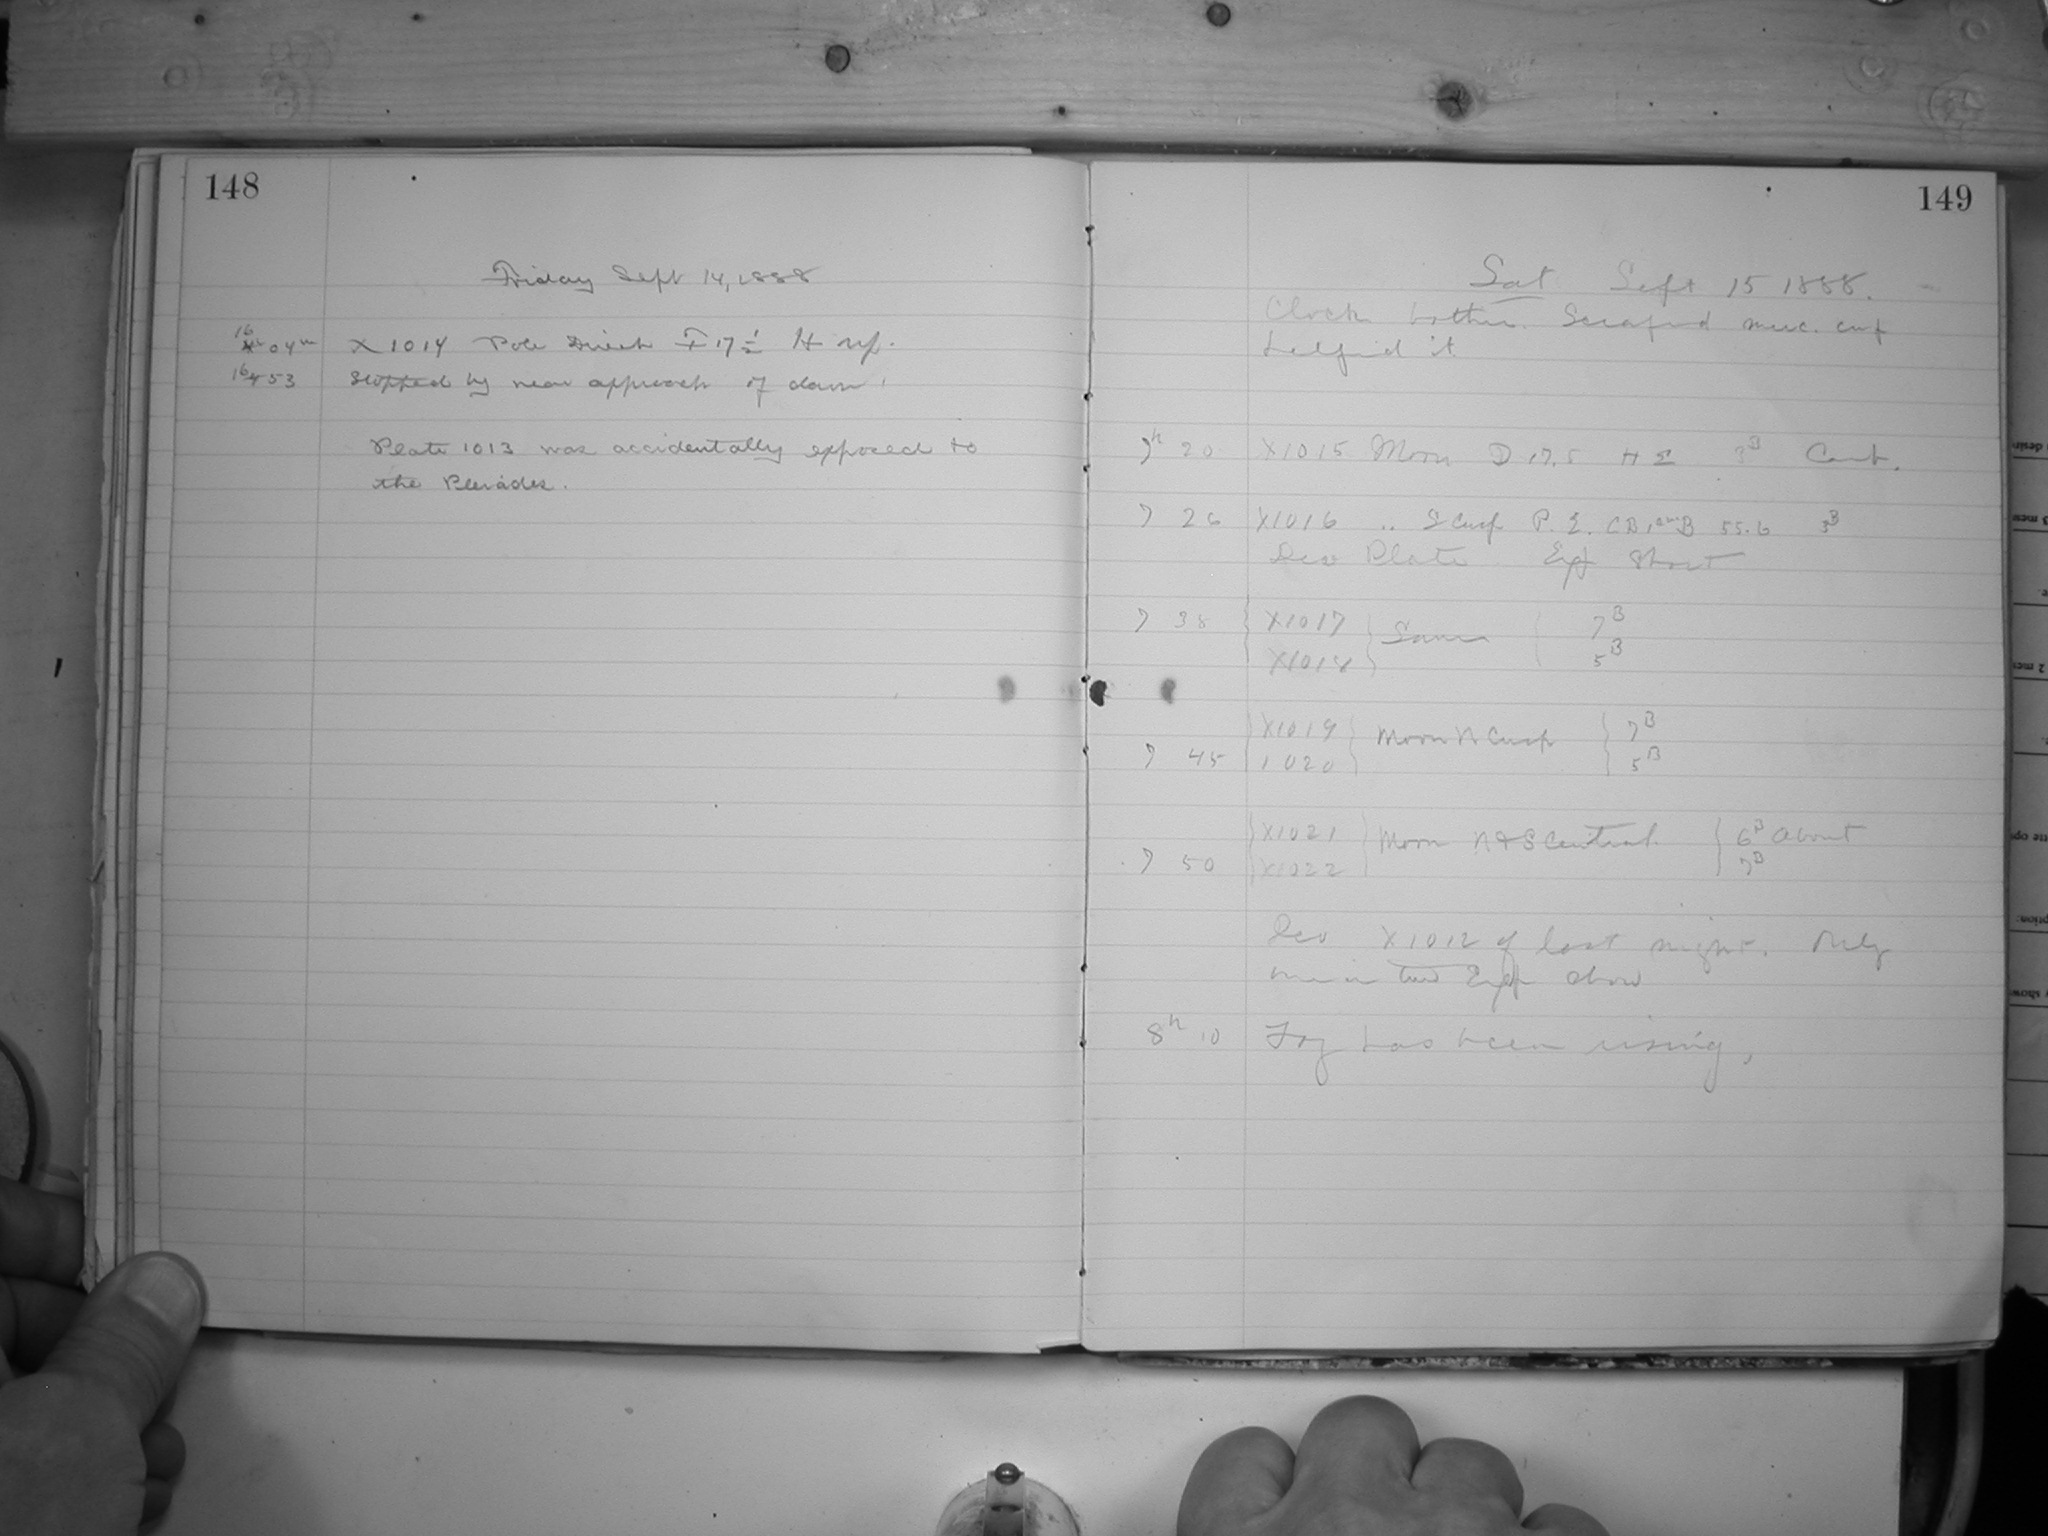 148
Friday Sept 14, 1888
16 04m X1014 Pole Direct F 17½ H up.
16 53 Stopped by near approach of dawn.
Plate 1013 was accidentally exposed to
the Pleiades.
149
Sat Sept 15 1888.
Clock bothers. Scraped merc. cup
helped it
7h 20 X1015 Moon D 17.5 H E 3B Cent.
7 26 X1016 " S Cusp P. E. CB, B 55.6 3B
Dev Plate Exp Short
7 38 { X1017 } Same { 7B
X1018 5B
{ X1019 } Moon N Cusp { 7B
7 45 1020 5B
{ X1021 } Moon N & S Central { 6B About
7 50 X1022 7B
Dev X1012 of last night. Only
one in two Exp show
8h 10 Fog has been rising,